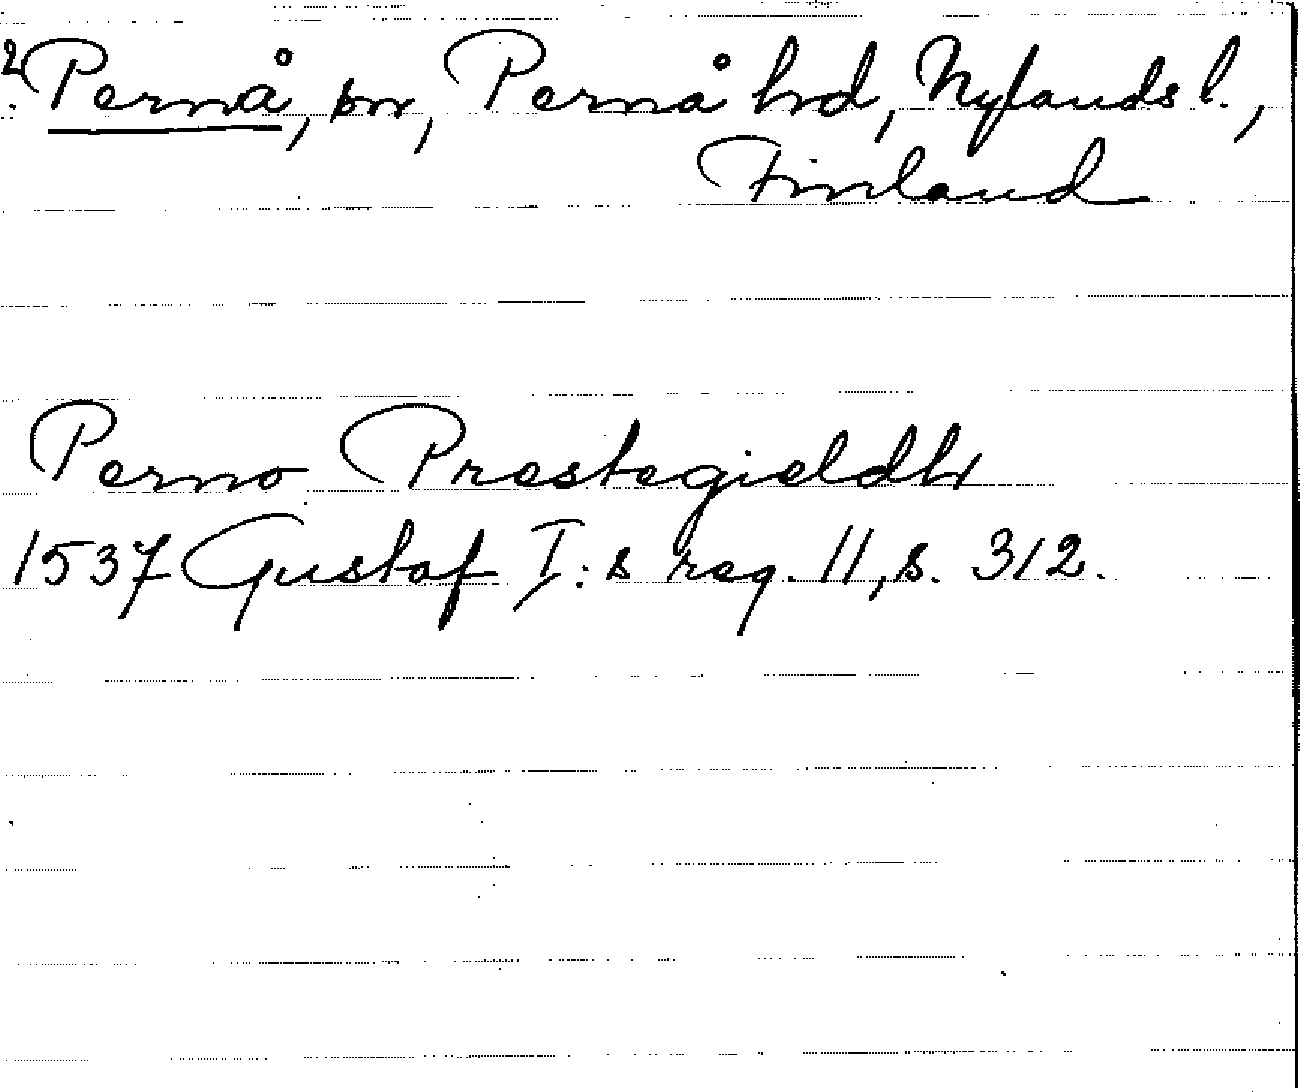 2. Pernå, sn, Pernå hrd, Nylands l.,
Finland
Perno Prestegieldh
1537 Gustaf I:s reg. 11, s. 312.